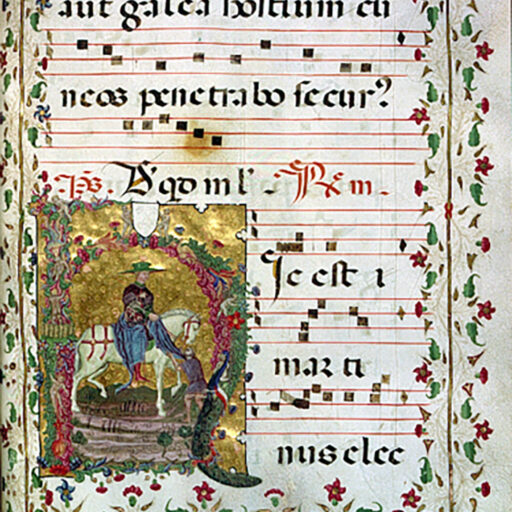 aut galea hostium cu
neos penetrabo secur?
Ps. D's qd m l'. Rx m.
Ic est i
mar ti
nus elec